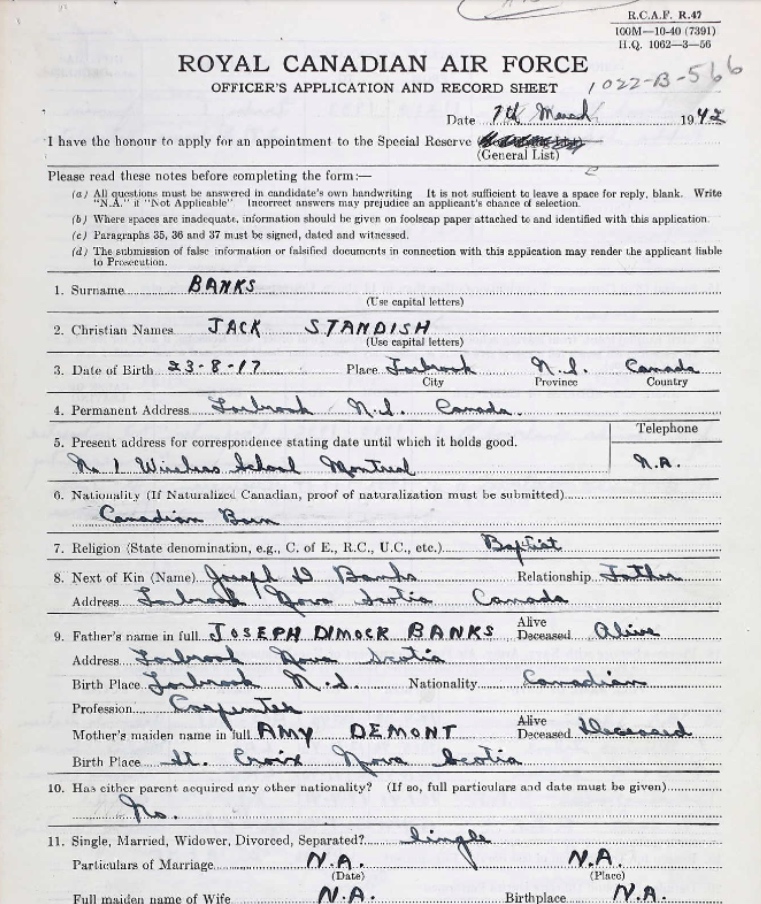 R.C.A.F. R.47
100M—10-40 (7391)
H.Q. 1062—3—56
ROYAL CANADIAN AIR FORCE
OFFICER'S APPLICATION AND RECORD SHEET 1022-B-566
Date 7th March 1942
I have the honour to apply for an appointment to the Special Reserve
(General List)
Please read these notes before completing the form:—
(a) All questions must be answered in candidate's own handwriting It is not sufficient to leave a space for reply, blank. Write
"N.A." if "Not Applicable" Incorrect answers may prejudice an applicant's chance of selection.
(b) Where spaces are inadequate, information should be given on foolscap paper attached to and identified with this application.
(c) Paragraphs 35, 36 and 37 must be signed, dated and witnessed.
(d) The submission of false information or falsified documents in connection with this application may render the applicant liable
to Prosecution.
1. Surname BANKS
(Use capital letters)
2. Christian Names JACK STANDISH
(Use capital letters)
3. Date of Birth 23-8-17 Place Torbrook N.S. Canada
City Province Country
4. Permanent Address Torbrook N.S. Canada.
5. Present address for correspondence stating date until which it holds good. Telephone
No 1 Wireless School Montreal N.A.
6. Nationality (If Naturalized Canadian, proof of naturalization must be submitted)
Canadian Born
7. Religion (State denomination, e.g., C. of E., R.C., U.C., etc.) Baptist
8. Next of Kin (Name) Joseph D Banks Relationship Father
Address Torbrook Nova Scotia Canada
9. Father's name in full JOSEPH DIMOCK BANKS Alive Deceased Alive
Address Torbrook Nova Scotia
Birth Place Torbrook N.S. Nationality Canadian
Profession Carpenter
Mother's maiden name in full AMY DEMONT Alive Deceased Deceased
Birth Place St. Croix Nova Scotia
10. Has either parent acquired any other nationality? (If so, full particulars and date must be given)
No.
11. Single, Married, Widower, Divorced, Separated? Single
Particulars of Marriage N.A. N.A.
(Date) (Place)
Full maiden name of Wife N.A. Birthplace N.A.